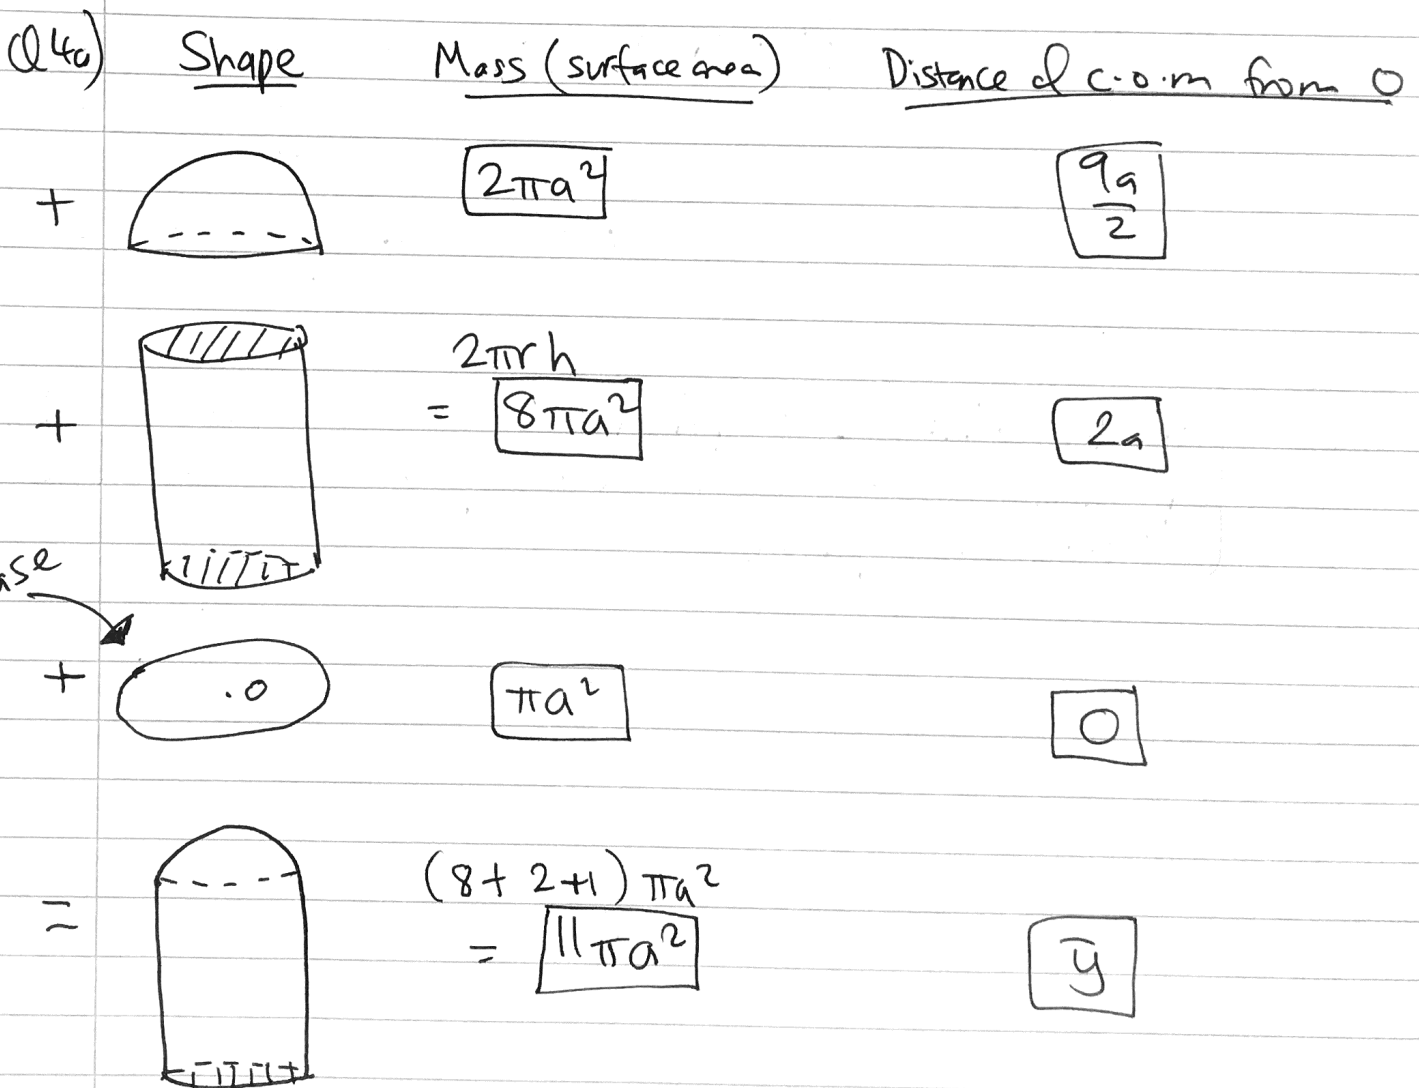 Q4a) Shape Mass (surface area) Distance of c.o.m from O
+ 2πa² 9a/2
2πrh
+ = 8πa² 2a
+ .O πa² O
(8+2+1)πa²
= = 11πa² ȳ